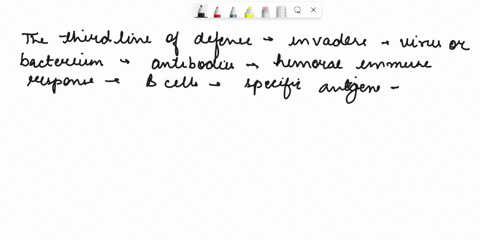 The third line of defense → invaders → virus or
bacterium → antibodies → humoral immune
response → B cells → specific antigens -